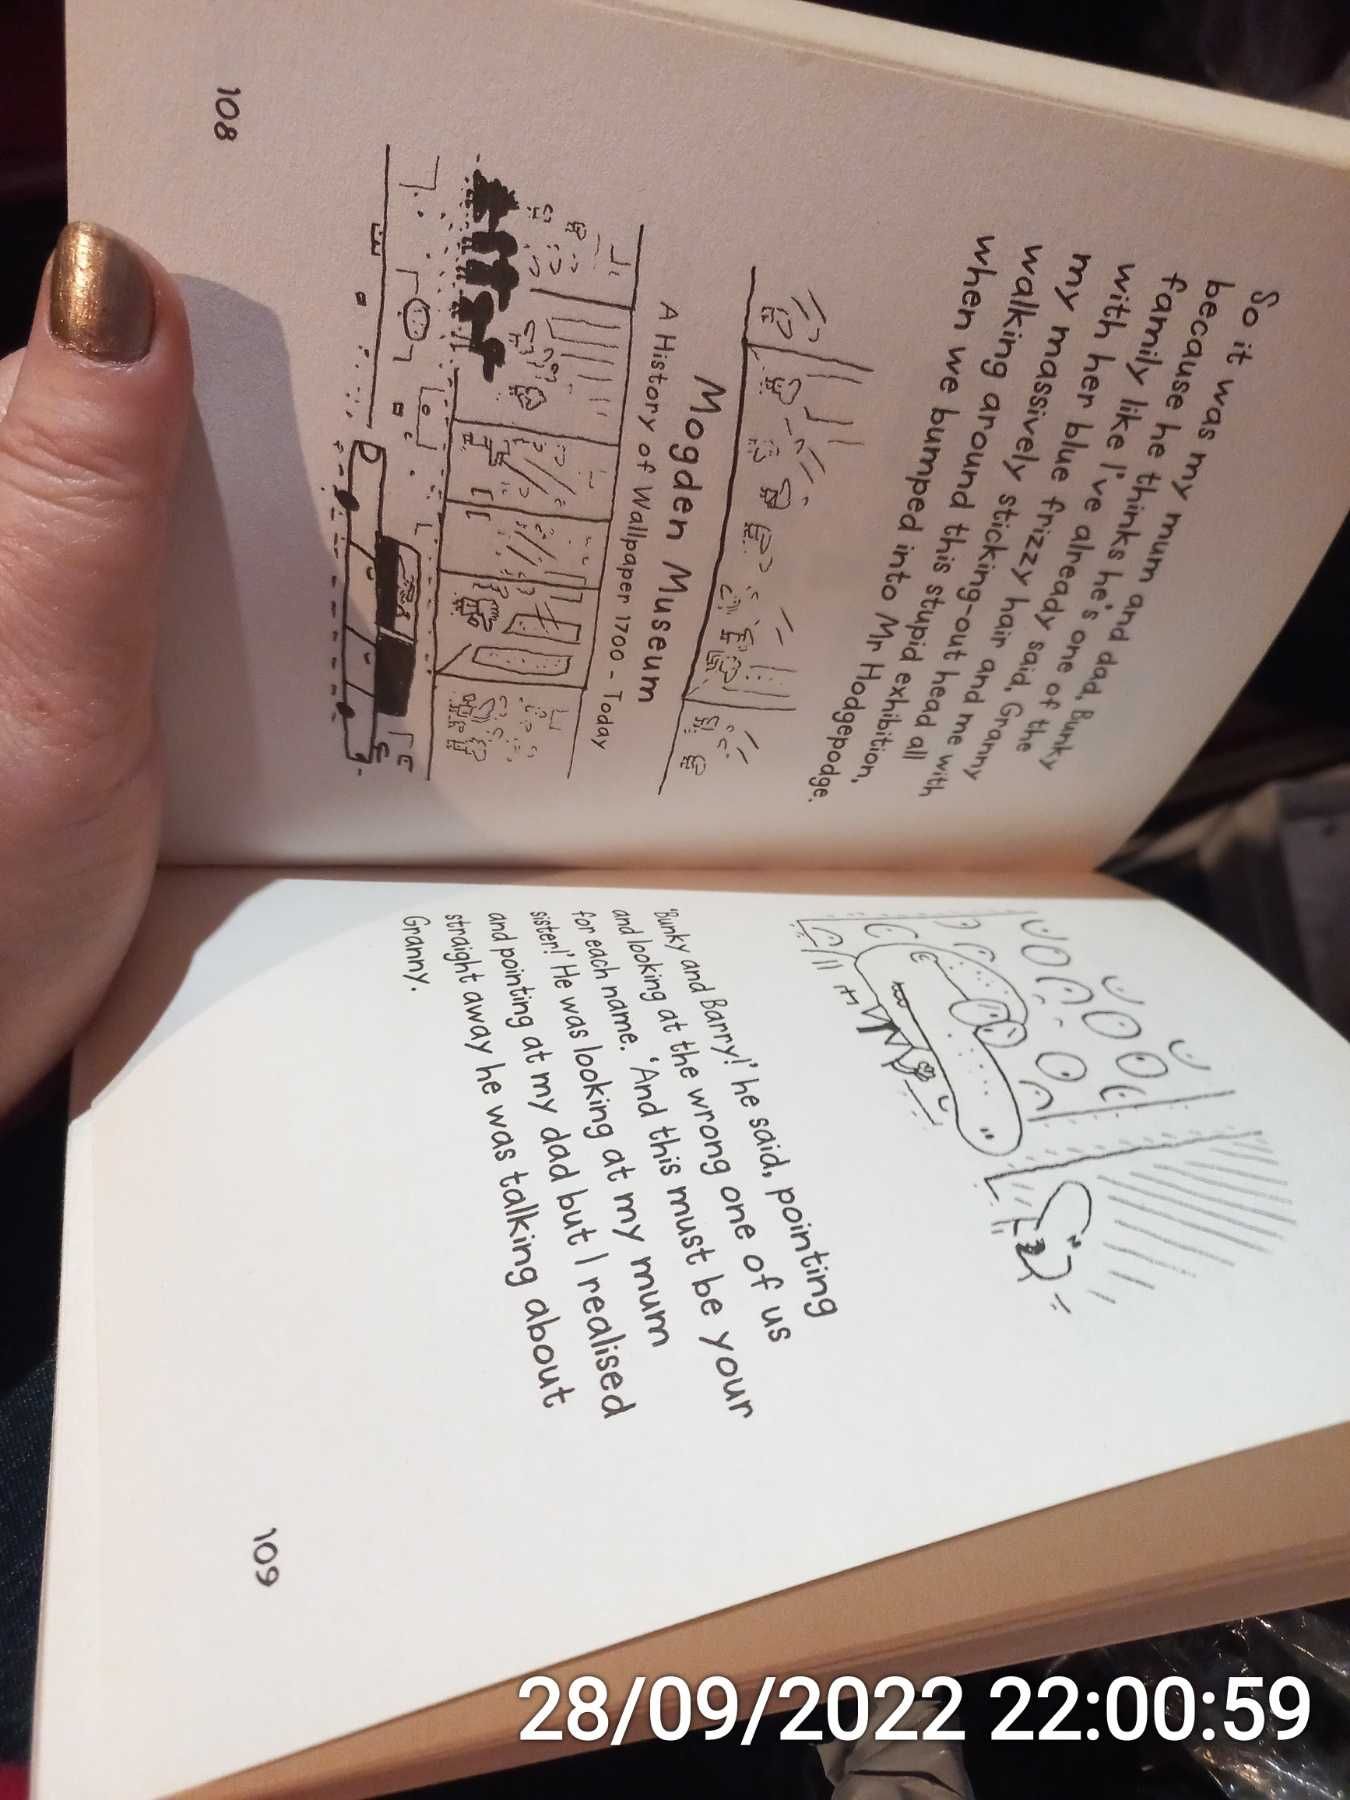 So it was my mum and dad, Bunky
because he thinks he's one of the
family like I've already said, Granny
with her blue frizzy hair and me with
my massively sticking-out head all
walking around this stupid exhibition,
when we bumped into Mr Hodgepodge.
Mogden Museum
A History of Wallpaper 1700 - Today
108
'Bunky and Barry!' he said, pointing
and looking at the wrong one of us
for each name. 'And this must be your
sister!' He was looking at my mum
and pointing at my dad but I realised
straight away he was talking about
Granny.
109
28/09/2022 22:00:59